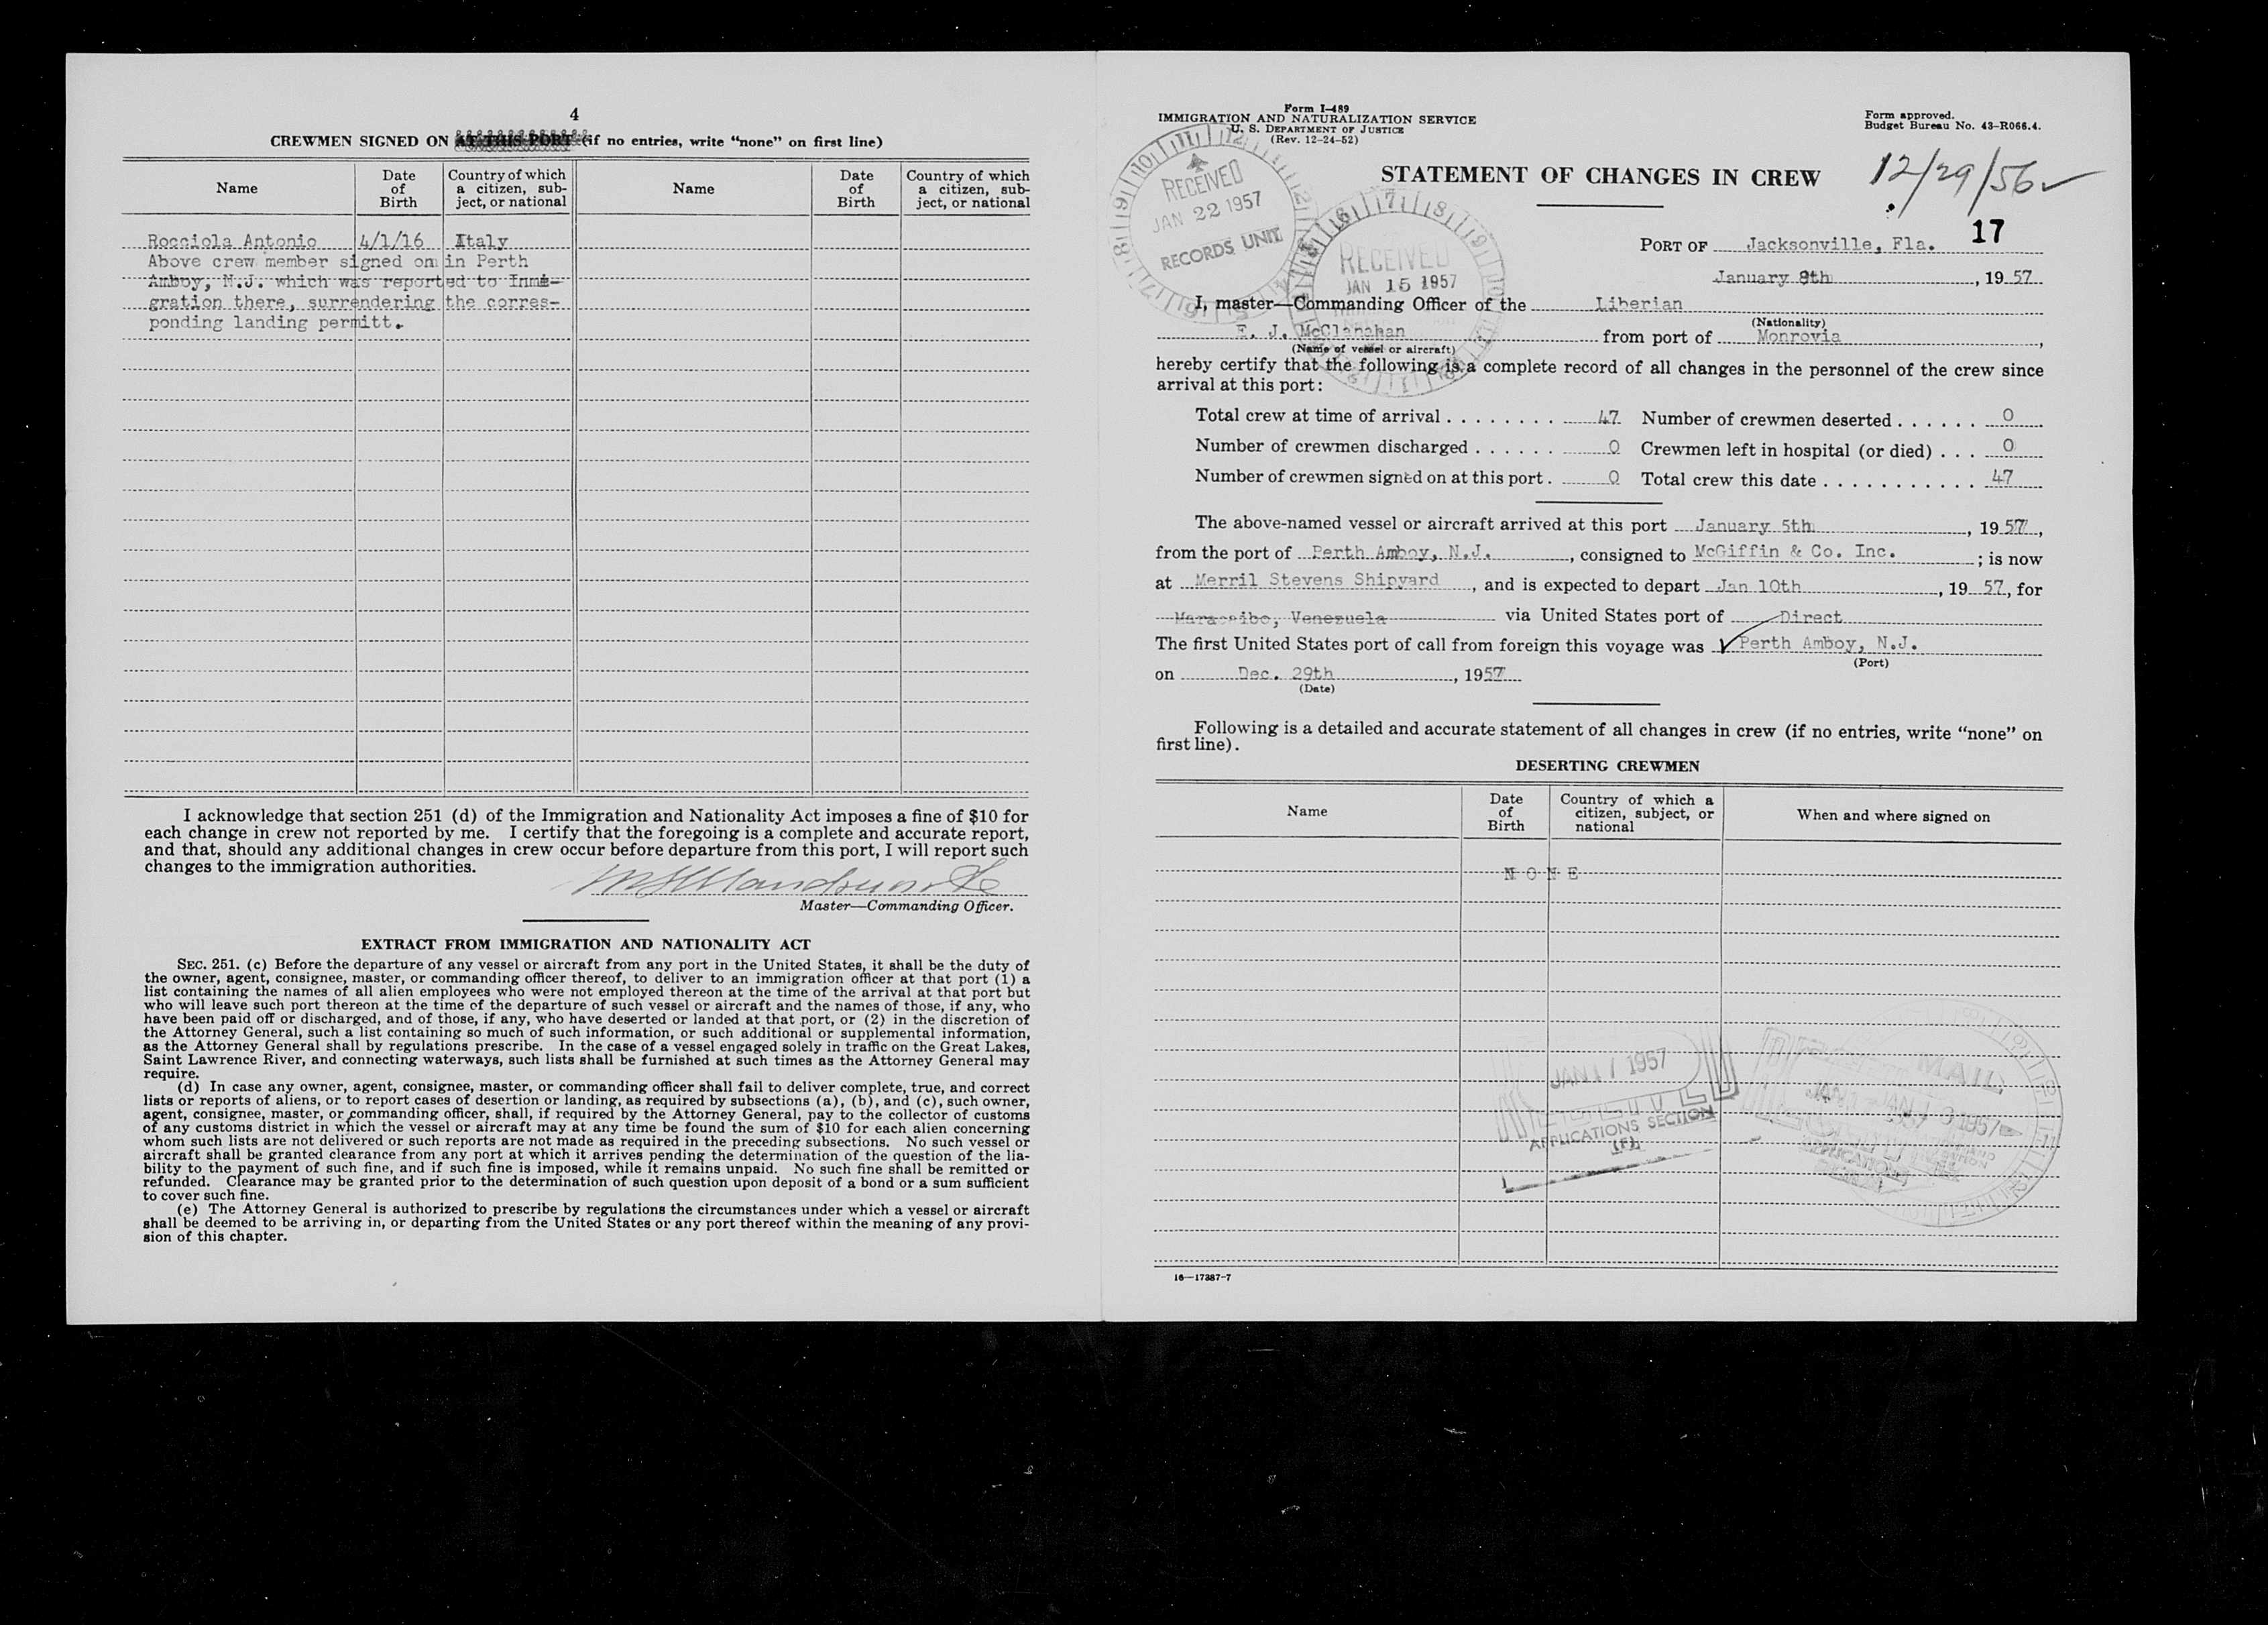 4
CREWMEN SIGNED ON AT THIS PORT (if no entries, write “none” on first line)
Name
Date of Birth
Country of which a citizen, sub-ject, or national
Name
Date of Birth
Country of which a citizen, sub-ject, or national
Rocciola Antonio 4/1/16 Italy
Above crew member signed on in Perth
Amboy, N.J. which was reported to Immi-
gration there, surrendering the corres-
ponding landing permitt.
I acknowledge that section 251 (d) of the Immigration and Nationality Act imposes a fine of $10 for
each change in crew not reported by me. I certify that the foregoing is a complete and accurate report,
and that, should any additional changes in crew occur before departure from this port, I will report such
changes to the immigration authorities.
Master—Commanding Officer.
EXTRACT FROM IMMIGRATION AND NATIONALITY ACT
SEC. 251. (c) Before the departure of any vessel or aircraft from any port in the United States, it shall be the duty of
the owner, agent, consignee, master, or commanding officer thereof, to deliver to an immigration officer at that port (1) a
list containing the names of all alien employees who were not employed thereon at the time of the arrival at that port but
who will leave such port thereon at the time of the departure of such vessel or aircraft and the names of those, if any, who
have been paid off or discharged, and of those, if any, who have deserted or landed at that port, or (2) in the discretion of
the Attorney General, such a list containing so much of such information, or such additional or supplemental information,
as the Attorney General shall by regulations prescribe. In the case of a vessel engaged solely in traffic on the Great Lakes,
Saint Lawrence River, and connecting waterways, such lists shall be furnished at such times as the Attorney General may
require.
(d) In case any owner, agent, consignee, master, or commanding officer shall fail to deliver complete, true, and correct
lists or reports of aliens, or to report cases of desertion or landing, as required by subsections (a), (b), and (c), such owner,
agent, consignee, master, or commanding officer, shall, if required by the Attorney General, pay to the collector of customs
of any customs district in which the vessel or aircraft may at any time be found the sum of $10 for each alien concerning
whom such lists are not delivered or such reports are not made as required in the preceding subsections. No such vessel or
aircraft shall be granted clearance from any port at which it arrives pending the determination of the question of the lia-
bility to the payment of such fine, and if such fine is imposed, while it remains unpaid. No such fine shall be remitted or
refunded. Clearance may be granted prior to the determination of such question upon deposit of a bond or a sum sufficient
to cover such fine.
(e) The Attorney General is authorized to prescribe by regulations the circumstances under which a vessel or aircraft
shall be deemed to be arriving in, or departing from the United States or any port thereof within the meaning of any provi-
sion of this chapter.
Form I-489
IMMIGRATION AND NATURALIZATION SERVICE
U. S. DEPARTMENT OF JUSTICE
(Rev. 12-24-52)
Form approved.
Budget Bureau No. 43-R066.4.
RECEIVED
JAN 22 1957
RECORDS UNIT
RECEIVED
JAN 15 1957
STATEMENT OF CHANGES IN CREW
12/29/56
17
PORT OF Jacksonville, Fla.
January 8th, 1957
I, master—Commanding Officer of the Liberian
(Nationality)
E. J. McClanahan from port of Monrovia,
(Name of vessel or aircraft)
hereby certify that the following is a complete record of all changes in the personnel of the crew since
arrival at this port:
Total crew at time of arrival . . . . . . . . 47 Number of crewmen deserted . . . . . . 0
Number of crewmen discharged . . . . . . 0 Crewmen left in hospital (or died) . . . 0
Number of crewmen signed on at this port . 0 Total crew this date . . . . . . . . . . . 47
The above-named vessel or aircraft arrived at this port January 5th, 1957,
from the port of Perth Amboy, N.J., consigned to McGiffin & Co. Inc.; is now
at Merril Stevens Shipyard, and is expected to depart Jan 10th, 1957, for
Maracaibo, Venezuela via United States port of Direct
The first United States port of call from foreign this voyage was Perth Amboy, N.J.
(Port)
on Dec. 29th, 1957
(Date)
Following is a detailed and accurate statement of all changes in crew (if no entries, write “none” on
first line).
DESERTING CREWMEN
Name
Date of Birth
Country of which a citizen, subject, or national
When and where signed on
NONE
JAN 17 1957
RECEIVED
APPLICATIONS SECTION
MAIL
1957
16—17387-7